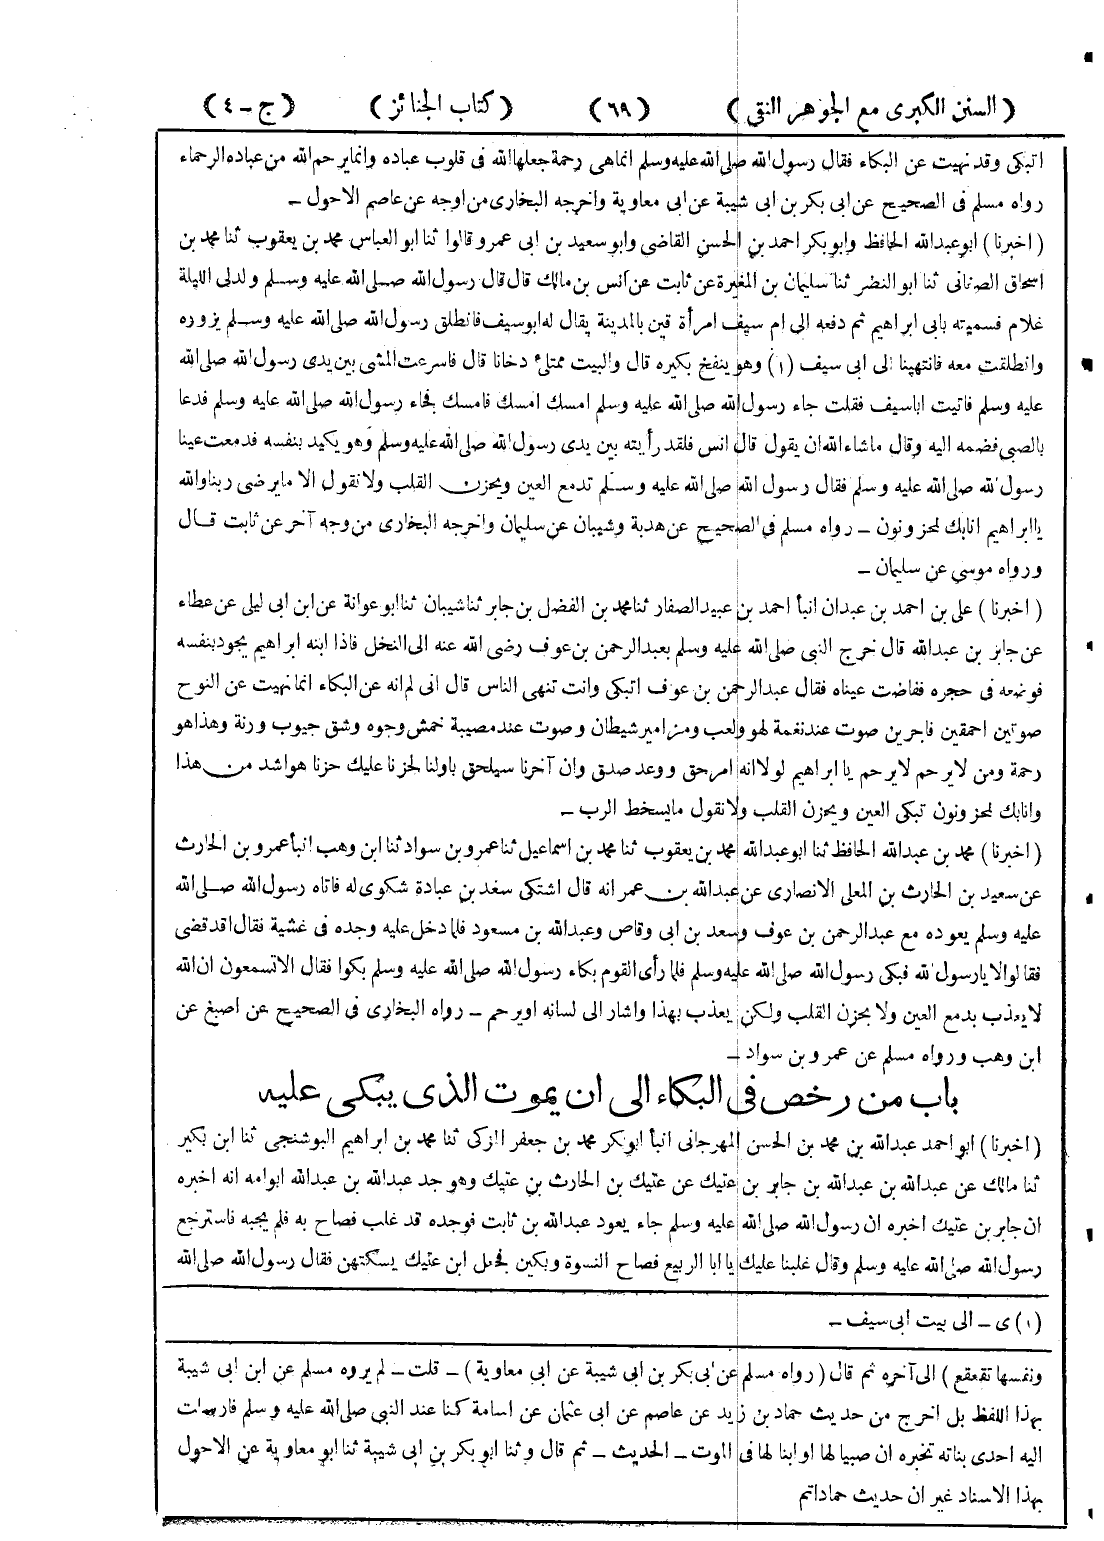 ( السنن الكبرى مع الجوهر النقى ) ( ٦٩ ) ( كتاب الجنائز ) ( ج - ٤ )
اتبكى وقد نهيت عن البكاء فقال رسول الله صلى الله عليه وسلم انما هى رحمة جعلها الله فى قلوب عباده وانما يرحم الله من عباده الرحماء
رواه مسلم فى الصحيح عن ابى بكر بن ابى شيبة عن ابى معاوية واخرجه البخارى من اوجه عن عاصم الاحول -
( اخبرنا ) ابو عبدالله الحافظ وابو بكر احمد بن الحسن القاضى وابو سعيد بن ابى عمرو قالوا ثنا ابو العباس محمد بن يعقوب ثنا محمد بن
اسحاق الصغانى ثنا ابو النضر ثنا سليمان بن المغيرة عن ثابت عن انس بن مالك قال قال رسول الله صلى الله عليه وسلم ولد لى الليلة
غلام فسميته بابى ابراهيم ثم دفعه الى ام سيف امرأة قين بالمدينة يقال له ابو سيف فانطلق رسول الله صلى الله عليه وسلم يزوره
وانطلقت معه فانتهينا الى ابى سيف (١) وهو ينفخ بكيره قال والبيت ممتلئ دخانا قال فاسرعت المشى بين يدى رسول الله صلى الله
عليه وسلم فاتيت ابا سيف فقلت جاء رسول الله صلى الله عليه وسلم امسك امسك فامسك فجاء رسول الله صلى الله عليه وسلم فدعا
بالصبى فضمه اليه وقال ما شاء الله ان يقول قال انس فلقد رأيته بين يدى رسول الله صلى الله عليه وسلم وهو يكيد بنفسه فدمعت عينا
رسول الله صلى الله عليه وسلم فقال رسول الله صلى الله عليه وسلم تدمع العين ويحزن القلب ولا نقول الا ما يرضى ربنا والله
يا ابراهيم انا بك لمحزونون - رواه مسلم فى الصحيح عن هدبة وشيبان عن سليمان واخرجه البخارى من وجه آخر عن ثابت قال
ورواه موسى عن سليمان -
( اخبرنا ) على بن احمد بن عبدان انبأ احمد بن عبيد الصفار ثنا محمد بن الفضل بن جابر ثنا شيبان ثنا ابو عوانة عن ابن ابى ليلى عن عطاء
عن جابر بن عبدالله قال خرج النبى صلى الله عليه وسلم بعبدالرحمن بن عوف رضى الله عنه الى النخل فاذا ابنه ابراهيم يجود بنفسه
فوضعه فى حجره ففاضت عيناه فقال عبدالرحمن بن عوف اتبكى وانت تنهى الناس قال انى لم انه عن البكاء انما نهيت عن النوح
صوتين احمقين فاجرين صوت عند نغمة لهو ولعب ومزامير شيطان وصوت عند مصيبة خمش وجوه وشق جيوب ورنة وهذا هو
رحمة ومن لا يرحم لا يرحم يا ابراهيم لولا انه امر حق ووعد صدق وان آخرنا سيلحق باولنا لحزنا عليك حزنا هو اشد من هذا
وانا بك لمحزونون تبكى العين ويحزن القلب ولا نقول ما يسخط الرب -
( اخبرنا ) محمد بن عبدالله الحافظ ثنا ابو عبدالله محمد بن يعقوب ثنا محمد بن اسماعيل ثنا عمرو بن سواد ثنا ابن وهب انبأ عمرو بن الحارث
عن سعيد بن الحارث بن المعلى الانصارى عن عبدالله بن عمر انه قال اشتكى سعد بن عبادة شكوى له فاتاه رسول الله صلى الله
عليه وسلم يعوده مع عبدالرحمن بن عوف وسعد بن ابى وقاص وعبدالله بن مسعود فلما دخل عليه وجده فى غشية فقال اقد قضى
فقالوا لا يا رسول الله فبكى رسول الله صلى الله عليه وسلم فلما رأى القوم بكاء رسول الله صلى الله عليه وسلم بكوا فقال الا تسمعون ان الله
لا يعذب بدمع العين ولا بحزن القلب ولكن يعذب بهذا واشار الى لسانه او يرحم - رواه البخارى فى الصحيح عن اصبغ عن
ابن وهب ورواه مسلم عن عمرو بن سواد -
باب من رخص فى البكاء الى ان يموت الذى يبكى عليه
( اخبرنا ) ابو احمد عبدالله بن محمد بن الحسن المهرجانى انبأ ابو بكر محمد بن جعفر المزكى ثنا محمد بن ابراهيم البوشنجى ثنا ابن بكير
ثنا مالك عن عبدالله بن عبدالله بن جابر بن عتيك عن عتيك بن الحارث بن عتيك وهو جد عبدالله بن عبدالله ابو امه انه اخبره
ان جابر بن عتيك اخبره ان رسول الله صلى الله عليه وسلم جاء يعود عبدالله بن ثابت فوجده قد غلب فصاح به فلم يجبه فاسترجع
رسول الله صلى الله عليه وسلم وقال غلبنا عليك يا ابا الربيع فصاح النسوة وبكين فجعل ابن عتيك يسكتهن فقال رسول الله صلى الله
(١) ى - الى بيت ابى سيف -
ونفسها تقعقع ) الى آخره ثم قال ( رواه مسلم عن ابى بكر بن ابى شيبة عن ابى معاوية ) - قلت - لم يروه مسلم عن ابن ابى شيبة
بهذا اللفظ بل اخرج من حديث حماد بن زيد عن عاصم عن ابى عثمان عن اسامة كنا عند النبى صلى الله عليه وسلم فارسلت
اليه احدى بناته تخبره ان صبيا لها او ابنا لها فى الموت - الحديث - ثم قال وثنا ابو بكر بن ابى شيبة ثنا ابو معاوية عن الاحول
بهذا الاسناد غير ان حديث حماد اتم